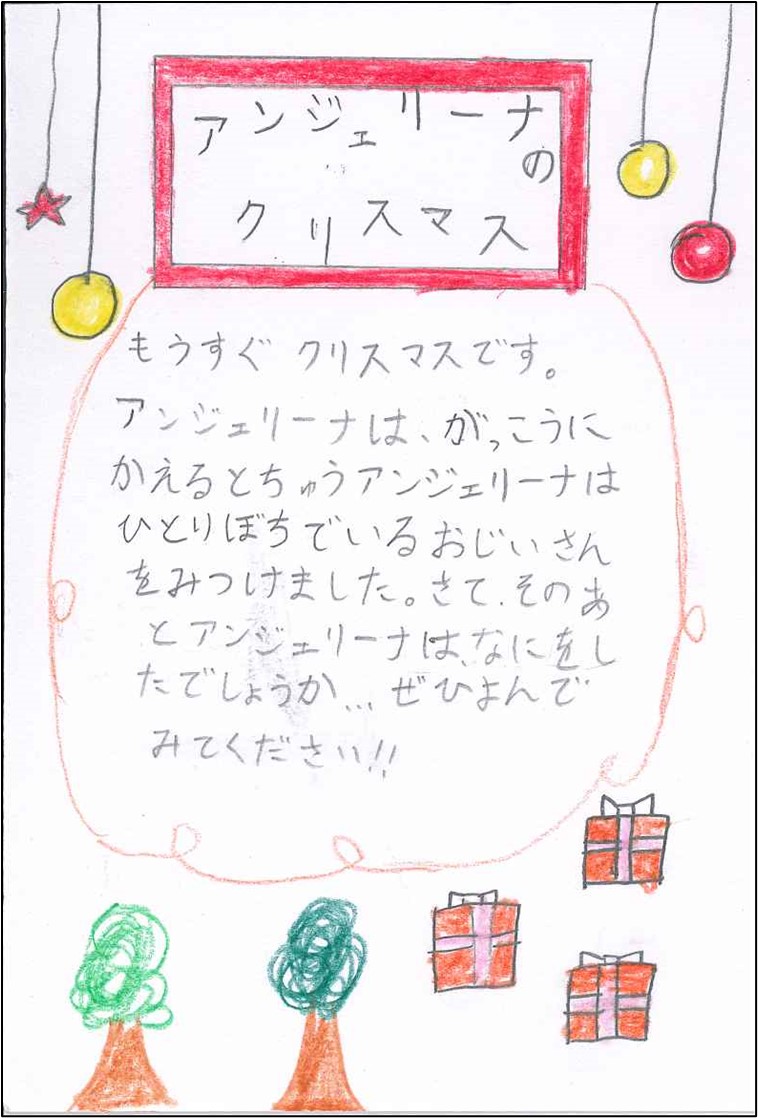 アンジェリーナ
の
クリスマス
もうすぐ クリスマスです。
アンジェリーナは、がっこうに
かえるとちゅうアンジェリーナは
ひとりぼちでいるおじいさん
をみつけました。さて、そのあ
とアンジェリーナは、なにをし
たでしょうか... ぜひよんで
みてください!!